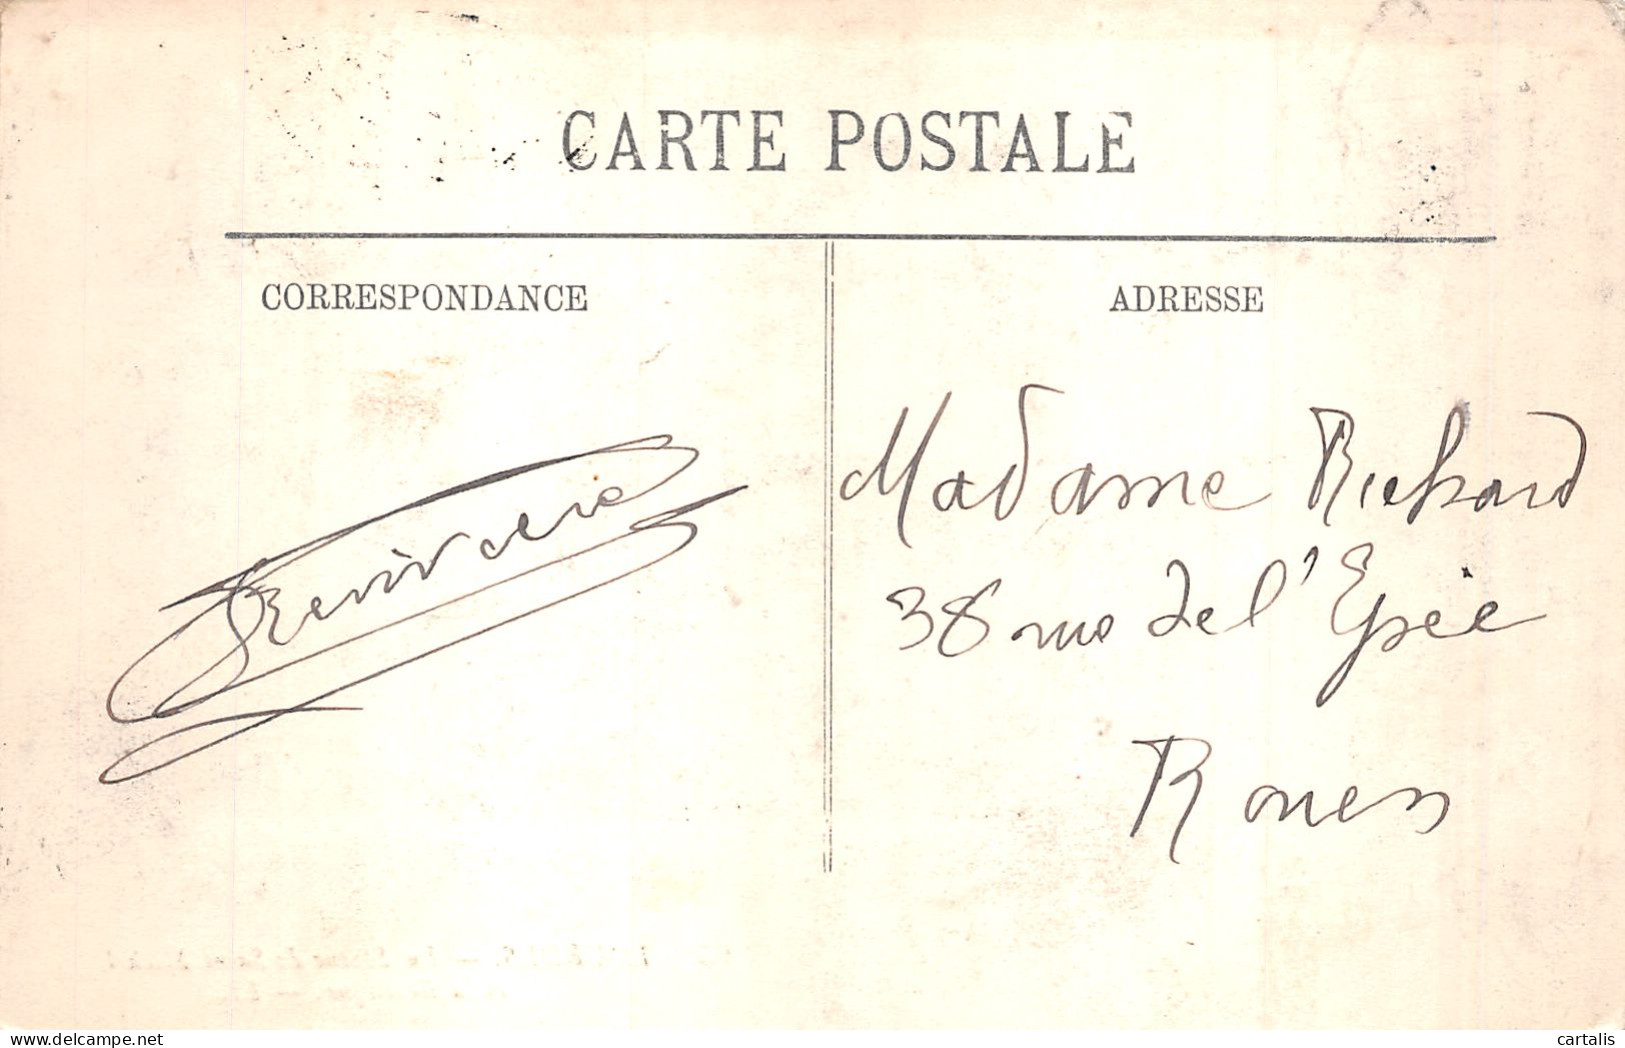 CARTE POSTALE
CORRESPONDANCE
ADRESSE
Madame Richard
38 rue de l'Epée
Rouen
cartalis